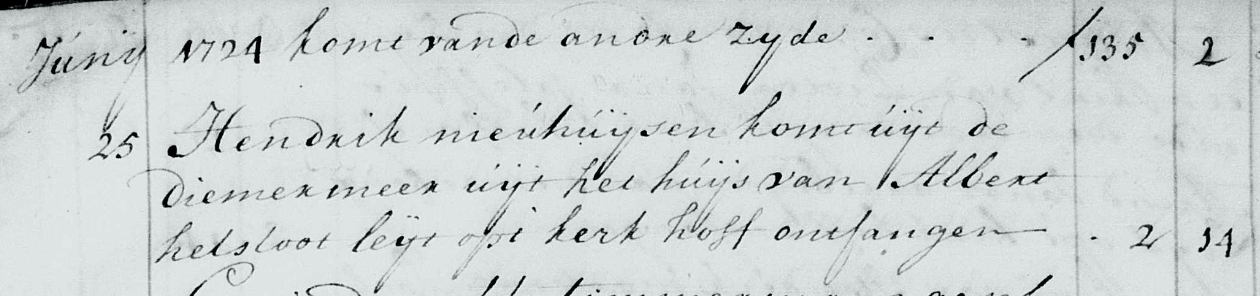 Júnij 1724 komt vande andre zyde . . . f 135 2
25 Hendrik nieúhúijsen komt úijt de
diemermeer úijt het húijs van Albert
helsloot leijt opt kerk hoff ontfangen . 2 14